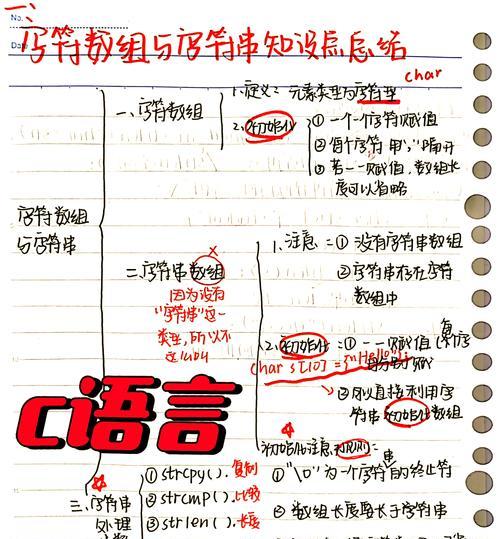 No.
一、
字符数组与字符串知识点总结
char
一、字符数组
1.定义：元素类型为字符型
2.初始化
① 一个个字符赋值
② 每个字符用","隔开
③ 若一一赋值，数组长度可以省略
字符数组
与字符串
二、字符串数组
×
因为没有
"字符串"这一
类型，所以不
1.注意：① 没有字符串数组
② 字符串存在字符
数组中
2.初始化：① 一一赋值
char st[10]={"Hello"};
② 可以直接利用字
符串初始化数组
C语言
初始化注意
① "\0"为一个字符串的终止符
② 数组长度要长于字符串
三、字符串
处理
① strcpy().复制
② strcmp().比较
③ strlen().长度